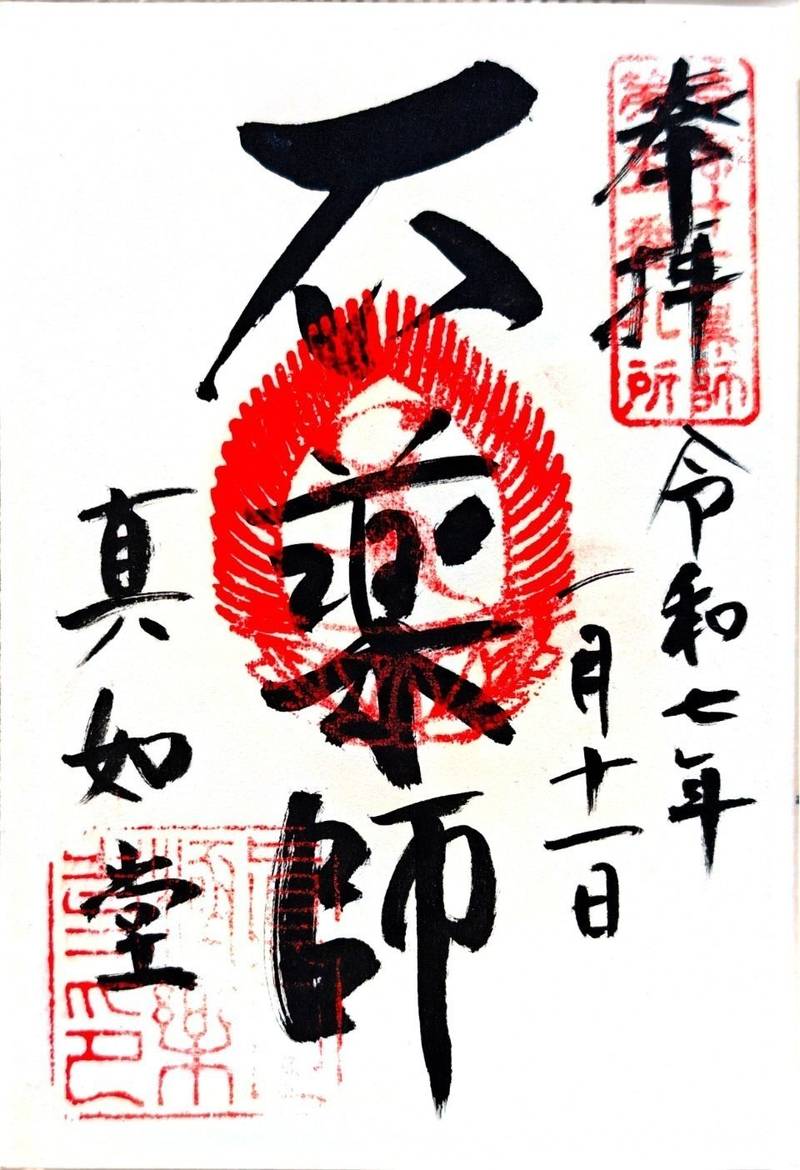 奉拝
令和七年
一月十一日
石薬師
真如堂